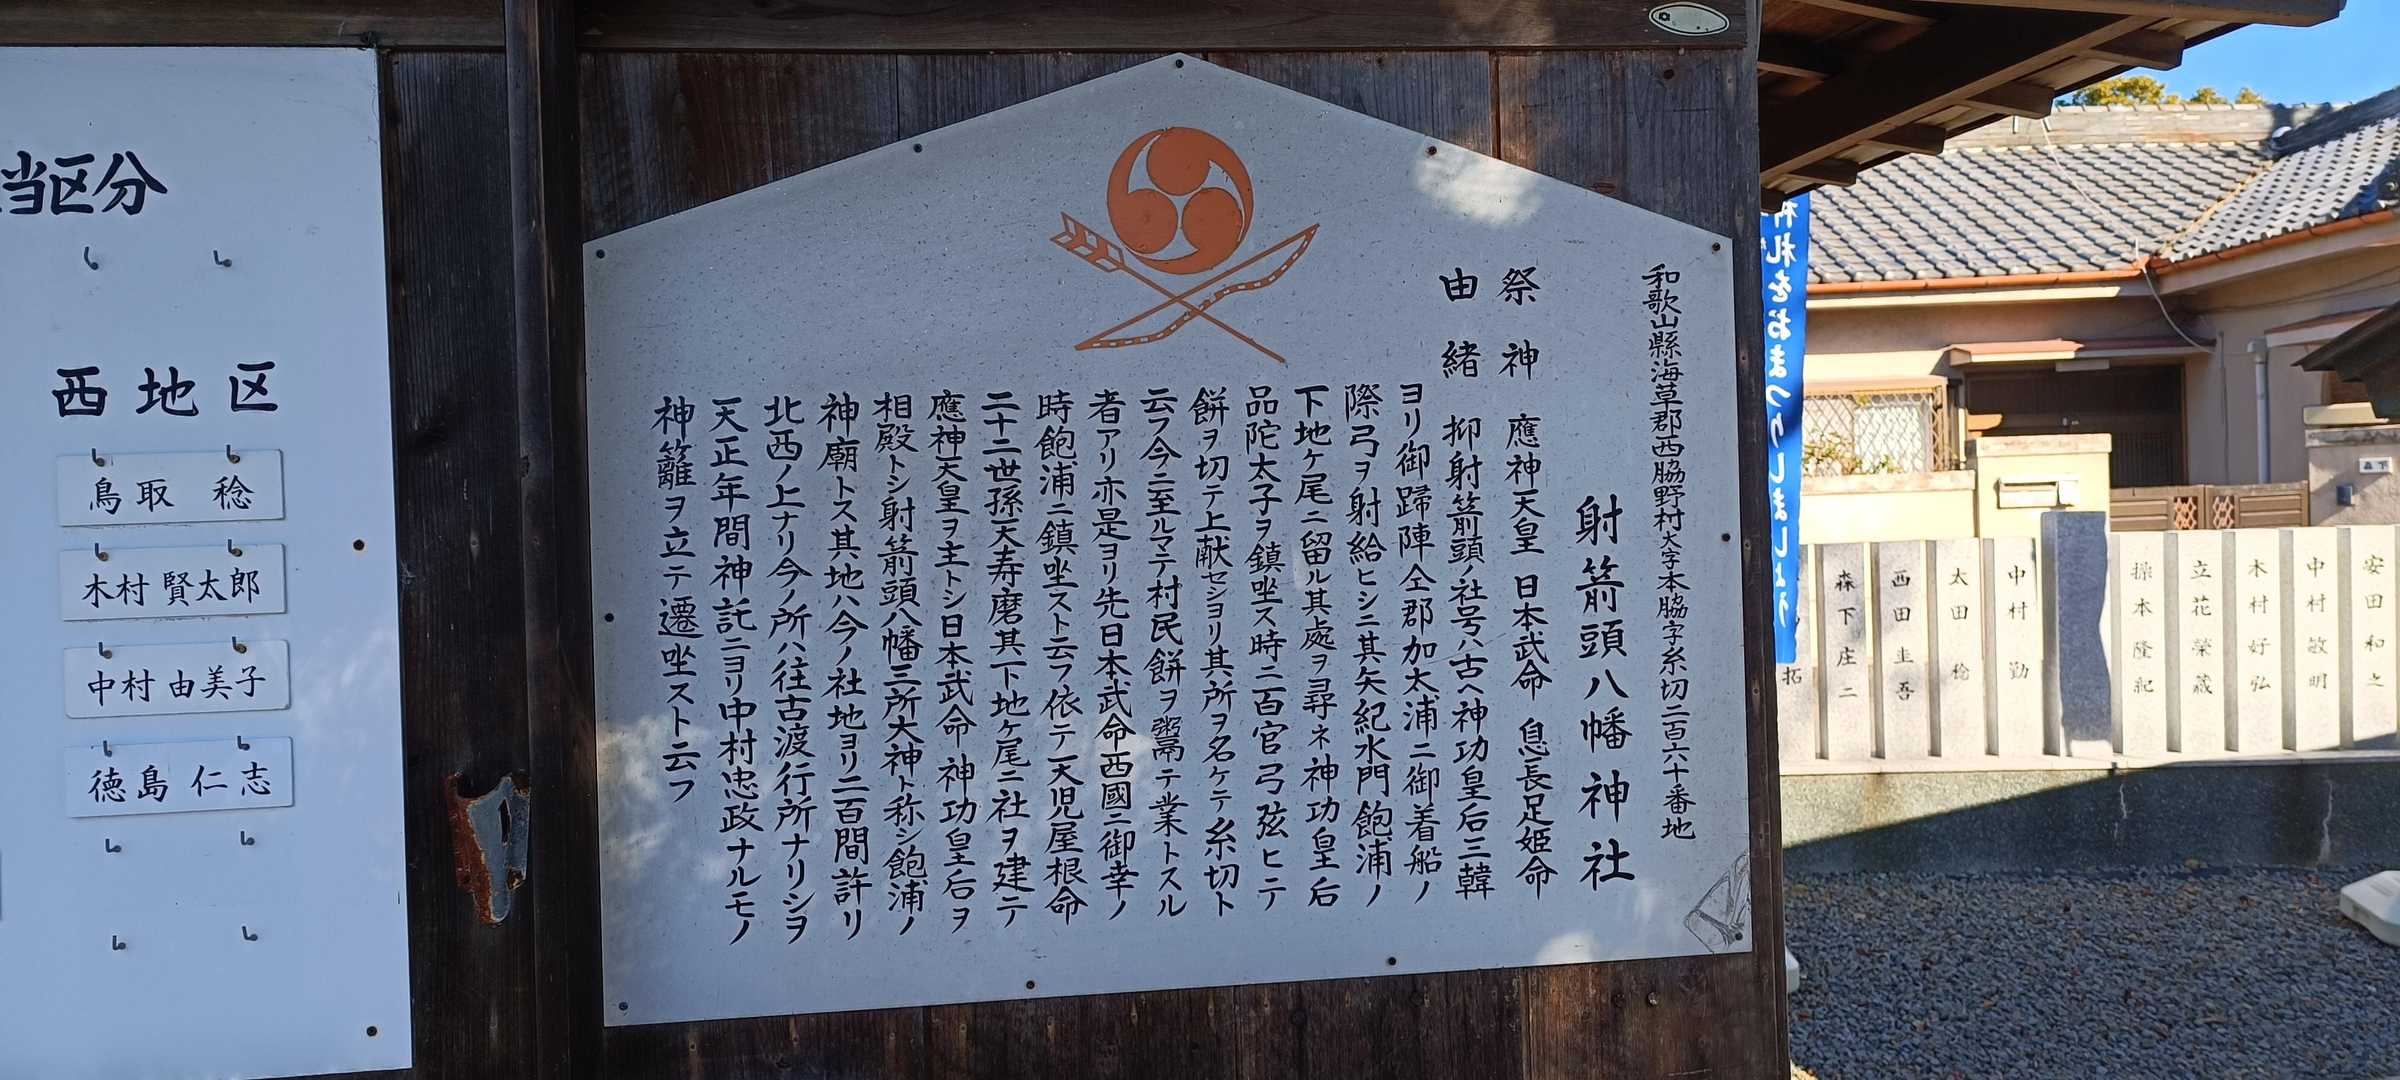 和歌山縣海草郡西脇野村大字本脇字糸切二百六十番地
射箭頭八幡神社
祭神 應神天皇 日本武命 息長足姫命
由緒 抑射箭頭ノ社号ハ古ヘ神功皇后三韓
ヨリ御歸陣仝郡加太浦ニ御着船ノ
際弓ヲ射給ヒシニ其矢紀水門飽浦ノ
下地ケ尾ニ留ル其處ヲ尋ネ神功皇后
品陀太子ヲ鎮坐ス時ニ百官弓弦ヒテ
餅ヲ切テ上献セシヨリ其所ヲ名ケテ糸切ト
云フ今ニ至ルマテ村民餅ヲ鬻テ業トスル
者アリ亦是ヨリ先日本武命西國ニ御幸ノ
時飽浦ニ鎮坐スト云フ依テ天児屋根命
二十二世孫天寿磨其下地ケ尾ニ社ヲ建テ
應神天皇ヲ主トシ日本武命神功皇后ヲ
相殿トシ射箭頭八幡三所大神ト称シ飽浦ノ
神廟トス其地ハ今ノ社地ヨリ二百間許リ
北西ノ上ナリ今ノ所ハ往古渡行所ナリシヲ
天正年間神託ニヨリ中村忠政ナルモノ
神籬ヲ立テ遷坐スト云フ
当区分
西地区
鳥取 稔
木村 賢太郎
中村 由美子
徳島 仁志
神札をおまつりしましょう
安田和之
中村敏明
木村好弘
立花榮蔵
操本隆紀
中村勤
太田稔
西田圭吾
森下庄二
拓
森下